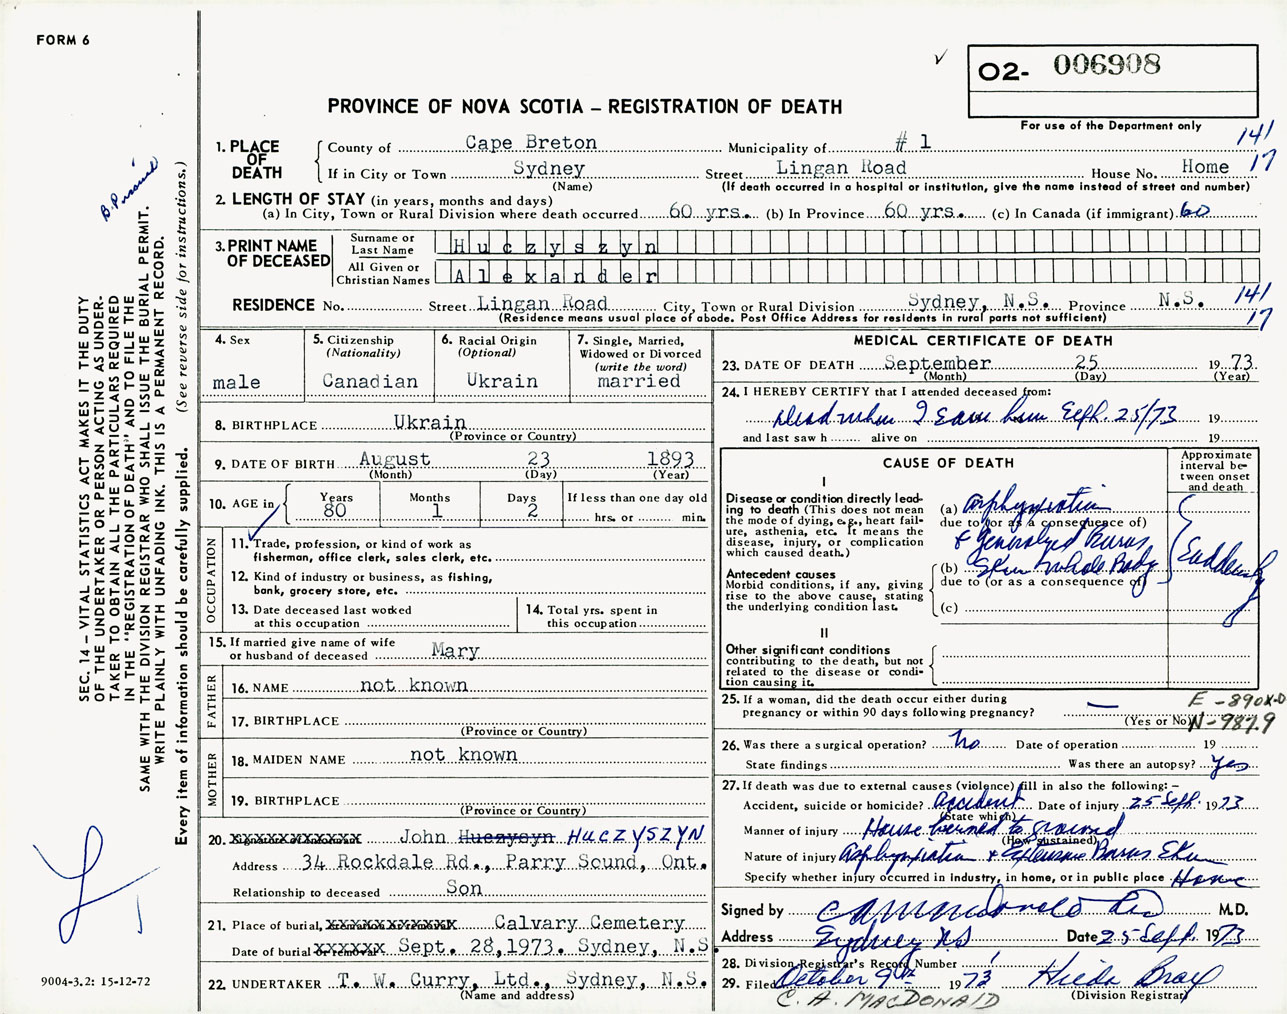 FORM 6
O2- 006908
PROVINCE OF NOVA SCOTIA – REGISTRATION OF DEATH
For use of the Department only
141
17
1. PLACE OF DEATH
County of Cape Breton Municipality of # 1
If in City or Town Sydney Street Lingan Road House No. Home
(Name) (If death occurred in a hospital or institution, give the name instead of street and number)
2. LENGTH OF STAY (in years, months and days)
(a) In City, Town or Rural Division where death occurred 60 yrs. (b) In Province 60 yrs. (c) In Canada (if immigrant) 60
3. PRINT NAME OF DECEASED
Surname or Last Name Huczyszyn
All Given or Christian Names Alexander
RESIDENCE No. Street Lingan Road City, Town or Rural Division Sydney, N.S. Province N.S. 141
(Residence means usual place of abode. Post Office Address for residents in rural parts not sufficient) 17
4. Sex
male
5. Citizenship
(Nationality)
Canadian
6. Racial Origin
(Optional)
Ukrain
7. Single, Married,
Widowed or Divorced
(write the word)
married
8. BIRTHPLACE Ukrain
(Province or Country)
9. DATE OF BIRTH August 23 1893
(Month) (Day) (Year)
10. AGE in
Years Months Days If less than one day old
80 1 2 hrs. or min.
OCCUPATION
11. Trade, profession, or kind of work as
fisherman, office clerk, sales clerk, etc.
12. Kind of industry or business, as fishing,
bank, grocery store, etc.
13. Date deceased last worked
at this occupation
14. Total yrs. spent in
this occupation
15. If married give name of wife
or husband of deceased Mary
FATHER
16. NAME not known
17. BIRTHPLACE
(Province or Country)
MOTHER
18. MAIDEN NAME not known
19. BIRTHPLACE
(Province or Country)
20. John Huczysyn HUCZYSZYN
Address 34 Rockdale Rd., Parry Sound, Ont.
Relationship to deceased Son
21. Place of burial, Calvary Cemetery
Date of burial Sept. 28,1973. Sydney, N.S.
22. UNDERTAKER T. W. Curry, Ltd., Sydney, N.S.
(Name and address)
MEDICAL CERTIFICATE OF DEATH
23. DATE OF DEATH September 25 1973
(Month) (Day) (Year)
24. I HEREBY CERTIFY that I attended deceased from:
Dead when I saw him Sept. 25/73 19
and last saw h alive on 19
CAUSE OF DEATH
Approximate
interval be-
tween onset
and death
I
Disease or condition directly lead-
ing to death (This does not mean
the mode of dying, e.g., heart fail-
ure, asthenia, etc. It means the
disease, injury, or complication
which caused death.)
(a) Asphyxiation
due to (or as a consequence of)
& Generalized Burns
(b) Skin Whole Body
due to (or as a consequence of)
(c)
Suddenly
Antecedent causes
Morbid conditions, if any, giving
rise to the above cause, stating
the underlying condition last.
II
Other significant conditions
contributing to the death, but not
related to the disease or condi-
tion causing it.
25. If a woman, did the death occur either during
pregnancy or within 90 days following pregnancy? —
(Yes or No)
E - 890X-D
N-987.9
26. Was there a surgical operation? No Date of operation 19
State findings Was there an autopsy? Yes
27. If death was due to external causes (violence) fill in also the following: –
Accident, suicide or homicide? Accident Date of injury 25 Sept. 1973
(State which)
Manner of injury House burned to ground
(How sustained)
Nature of injury Asphyxiation & Extensive Burns Skin
Specify whether injury occurred in industry, in home, or in public place Home
Signed by M.D.
Address Sydney NS Date 25 Sept. 1973
28. Division Registrar's Record Number
29. Filed October 9th 1973 Hilda Bray
(Division Registrar)
C. A. MACDONALD
SEC. 14 – VITAL STATISTICS ACT MAKES IT THE DUTY
OF THE UNDERTAKER OR PERSON ACTING AS UNDER-
TAKER TO OBTAIN ALL THE PARTICULARS REQUIRED
IN THE "REGISTRATION OF DEATH" AND TO FILE THE
SAME WITH THE DIVISION REGISTRAR WHO SHALL ISSUE THE BURIAL PERMIT.
WRITE PLAINLY WITH UNFADING INK. THIS IS A PERMANENT RECORD.
Every item of information should be carefully supplied. (See reverse side for instructions.)
9004-3.2: 15-12-72